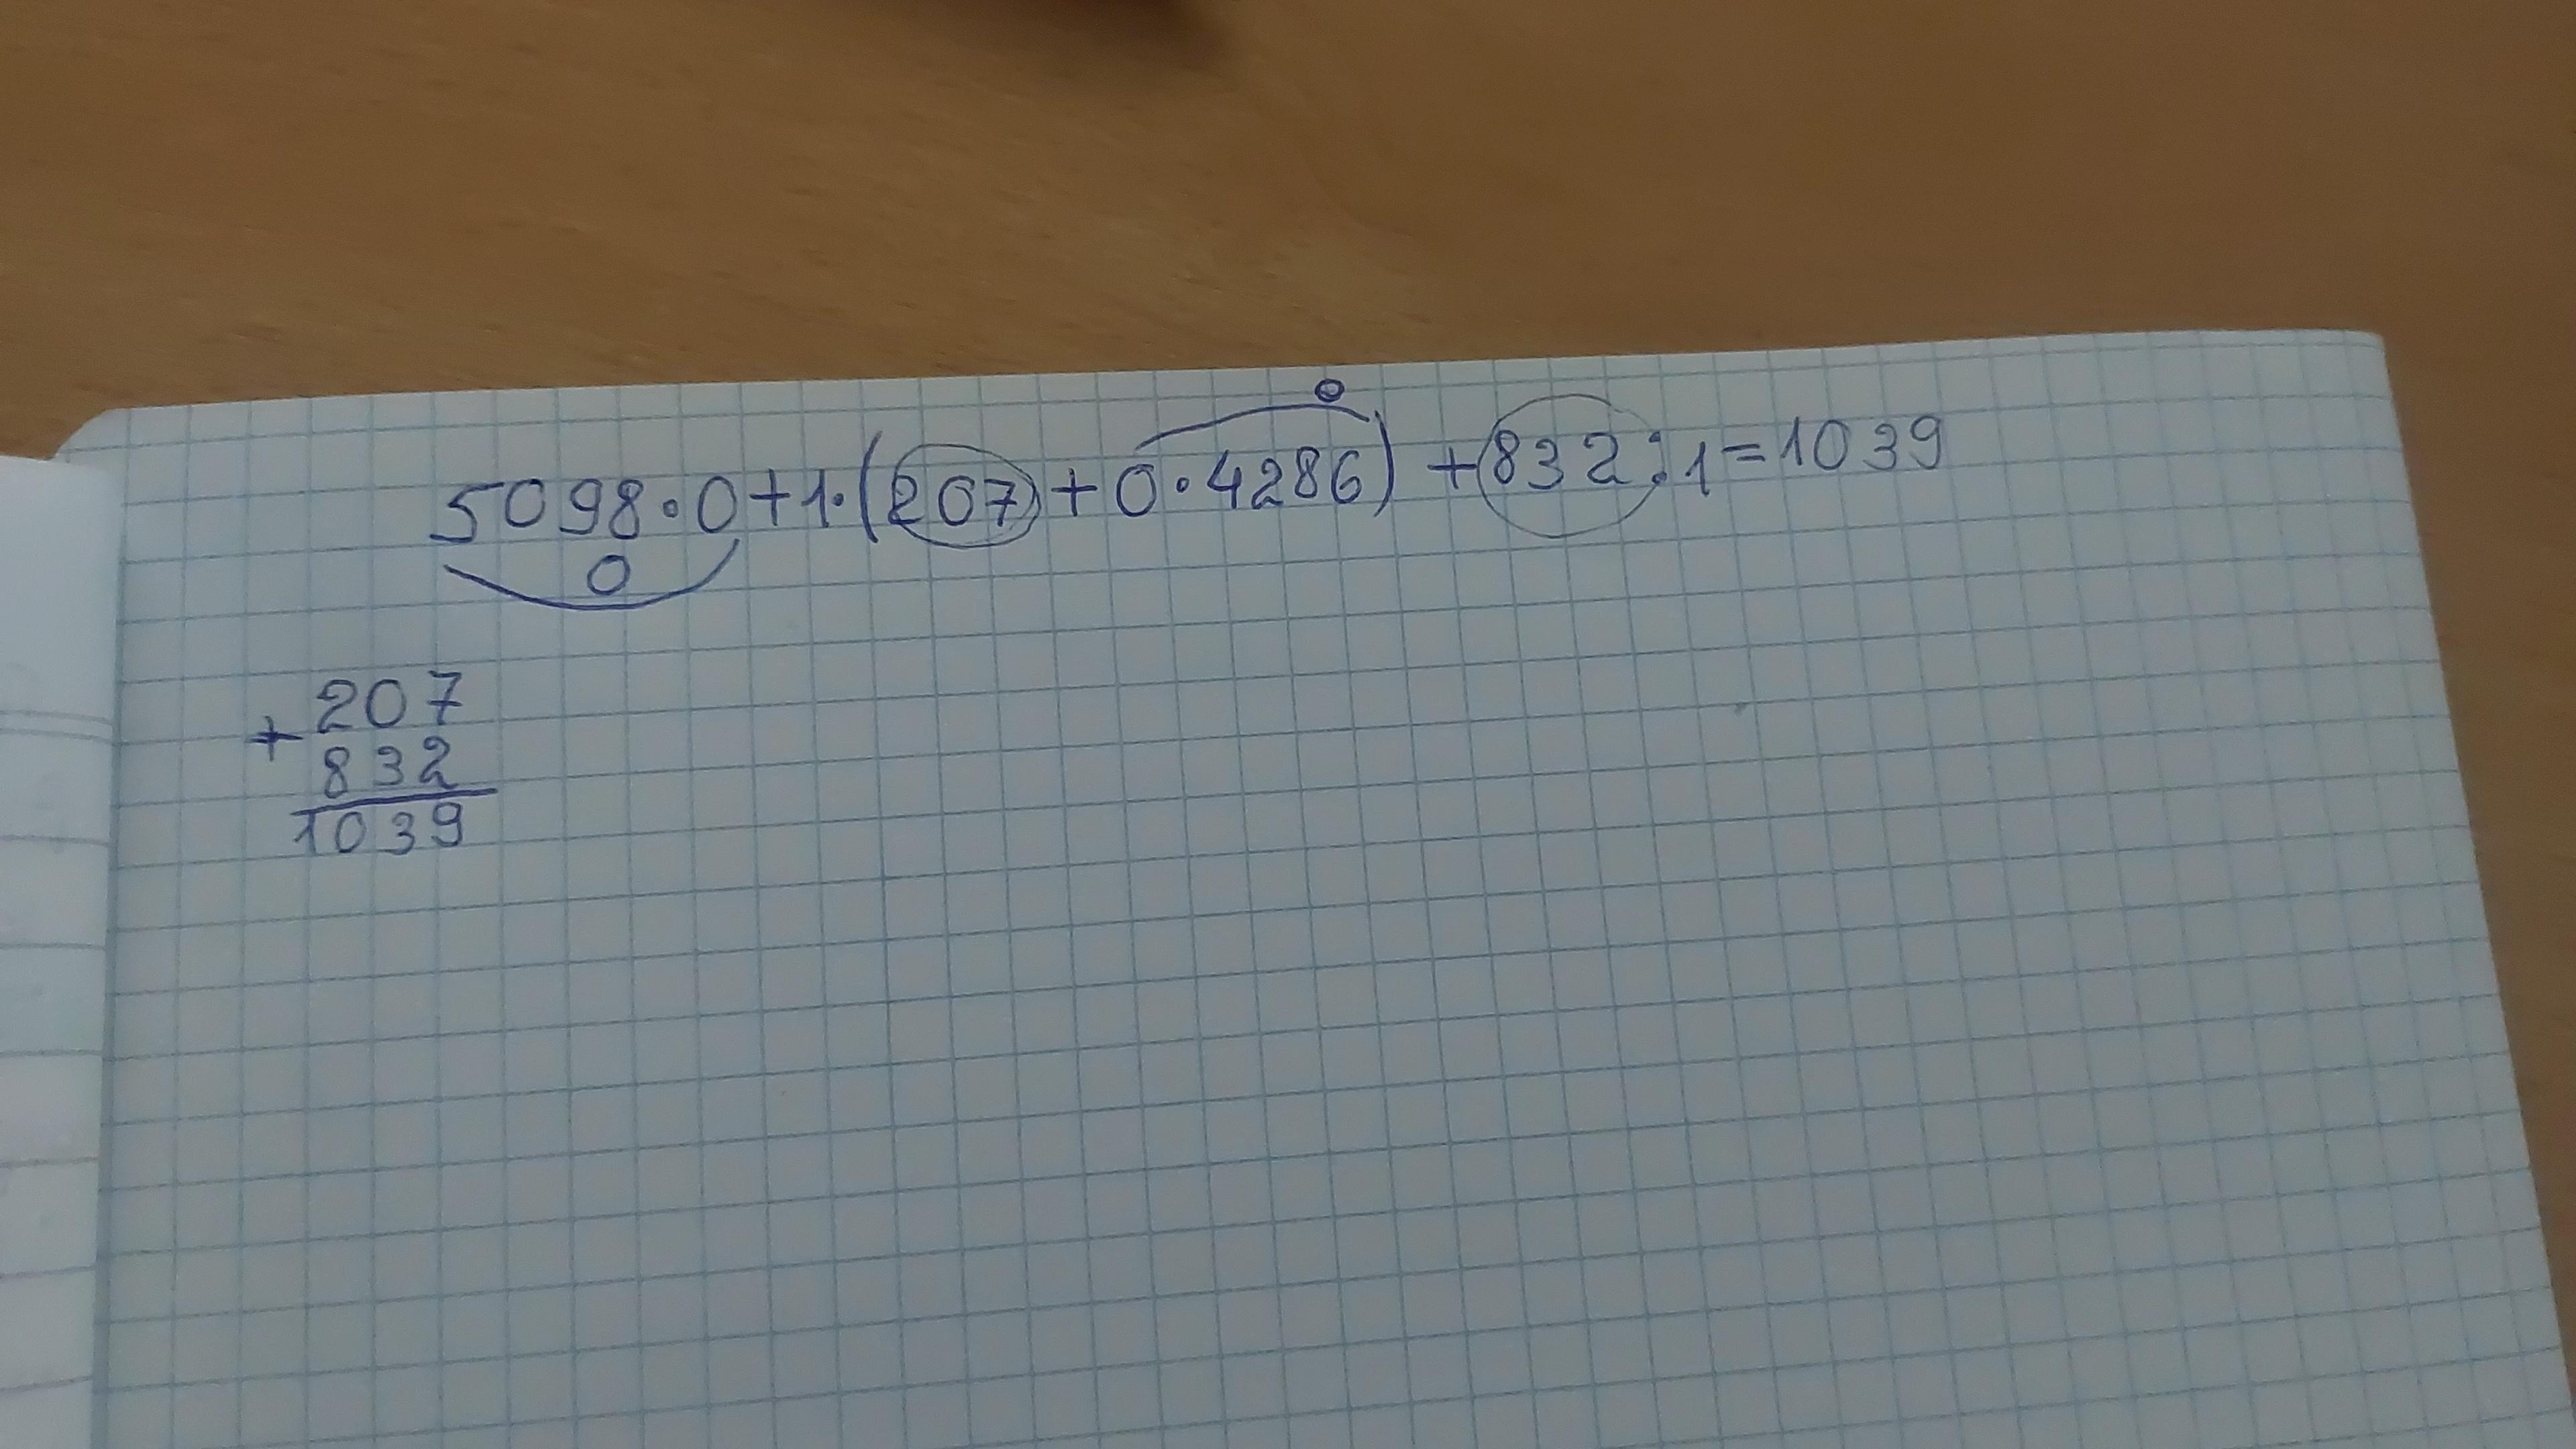 0
5098·0+1·(207+0·4286)+832:1=1039
0
207
+
832
1039